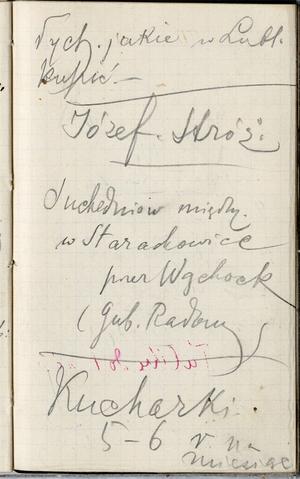 Tych. jakie w Lubl.
kupić.—
Józef Stróż.
Suchedniów między.
w Starachowice
przez Wąchock
(gub. Radom
Kucharki.
5-6 r. na
miesiąc